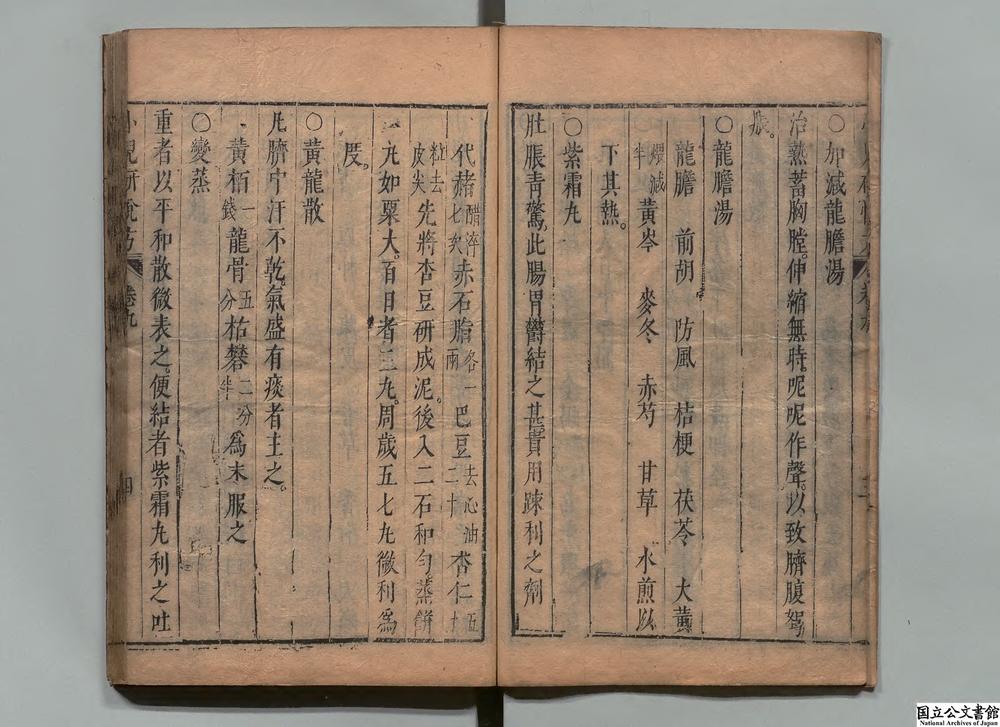 ○加減龍膽湯
治熱蓄胸膛。伸縮無時。呢呢作聲。以致臍腹
脹。
○龍膽湯
龍膽 前胡 防風 桔梗 茯苓 大黃
煨減半 黃芩 麥冬 赤芍 甘草 水煎以
下其熱。
○紫霜丸
肚脹青驚。此腸胃鬱結之甚貴用踈利之劑
代赭醋淬七次赤石脂各一兩巴豆去心油二十杏仁五十
粒去皮尖先將杏豆研成泥。後入二石和勻蒸餅
丸如粟大。百日者三丸。周歲五七丸微利為
度。
○黃龍散
凡臍中汗不乾。氣盛有痰者主之。
黃栢一錢龍骨五分枯礬二分半為末服之
○變蒸
重者以平和散微表之。便結者紫霜丸利之吐
卷九
四
国立公文書館
National Archives of Japan